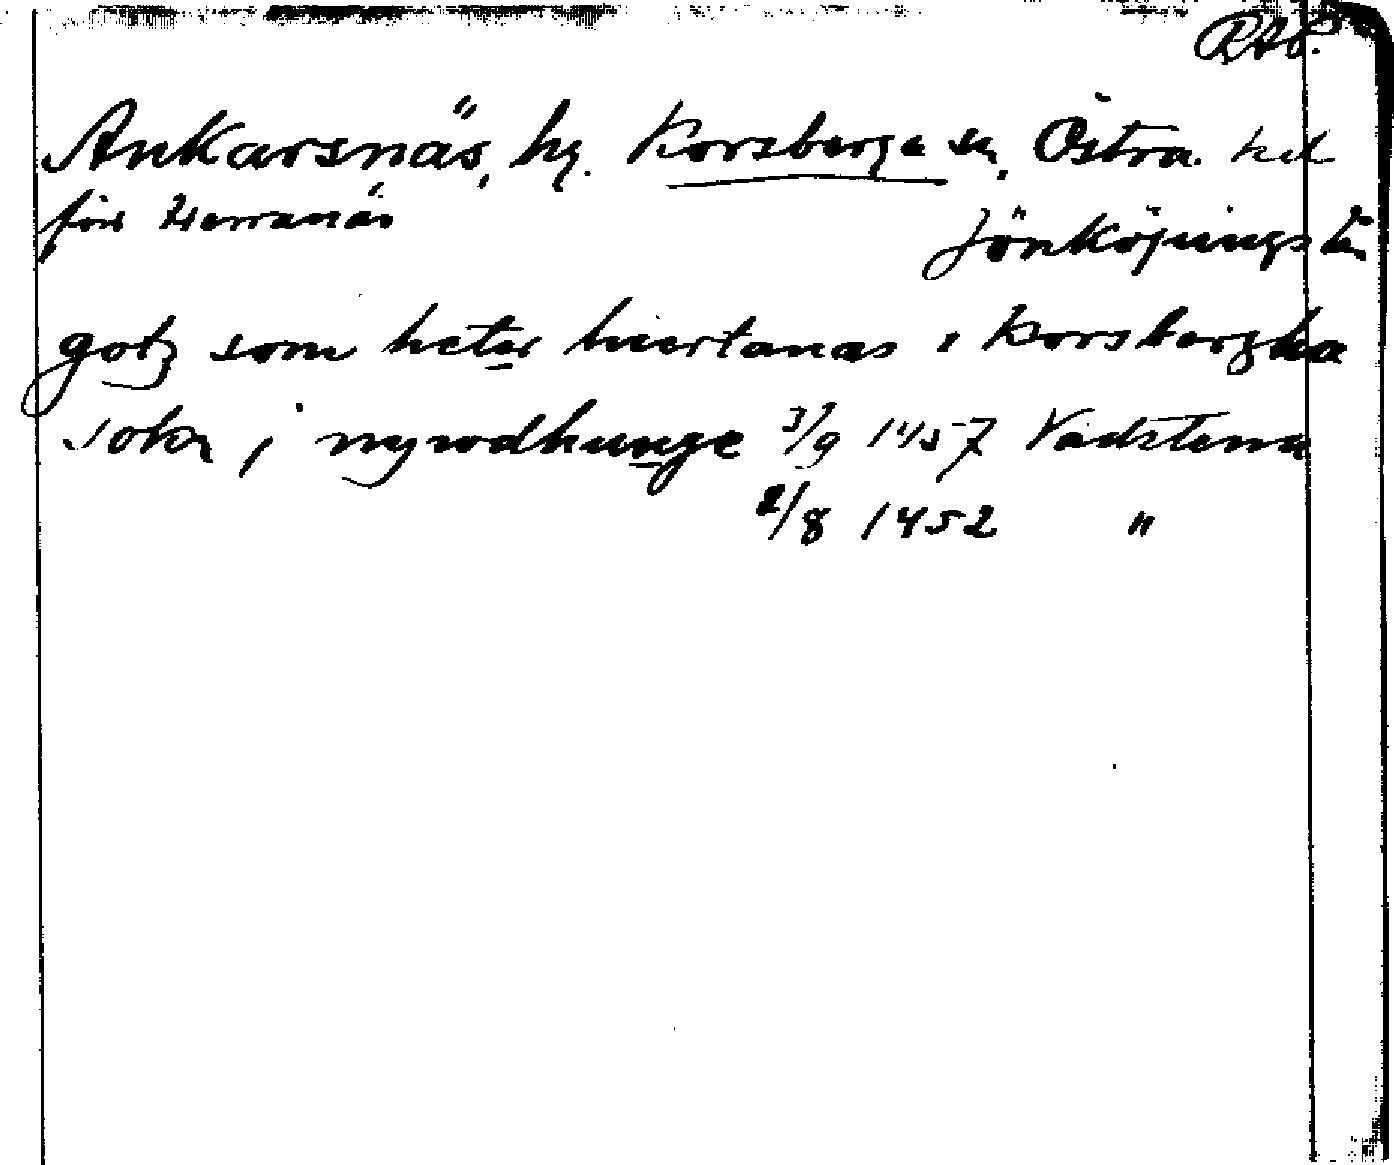 RAP.
Ankarsnäs, hg. Korsberga sn, Östra hd
förr Herranäs
Jönköpings län
gotz som heter hiertanas i Korsbergha
sokn i nyrodhunge 3/9 1457 Vadstena
2/8 1452 "